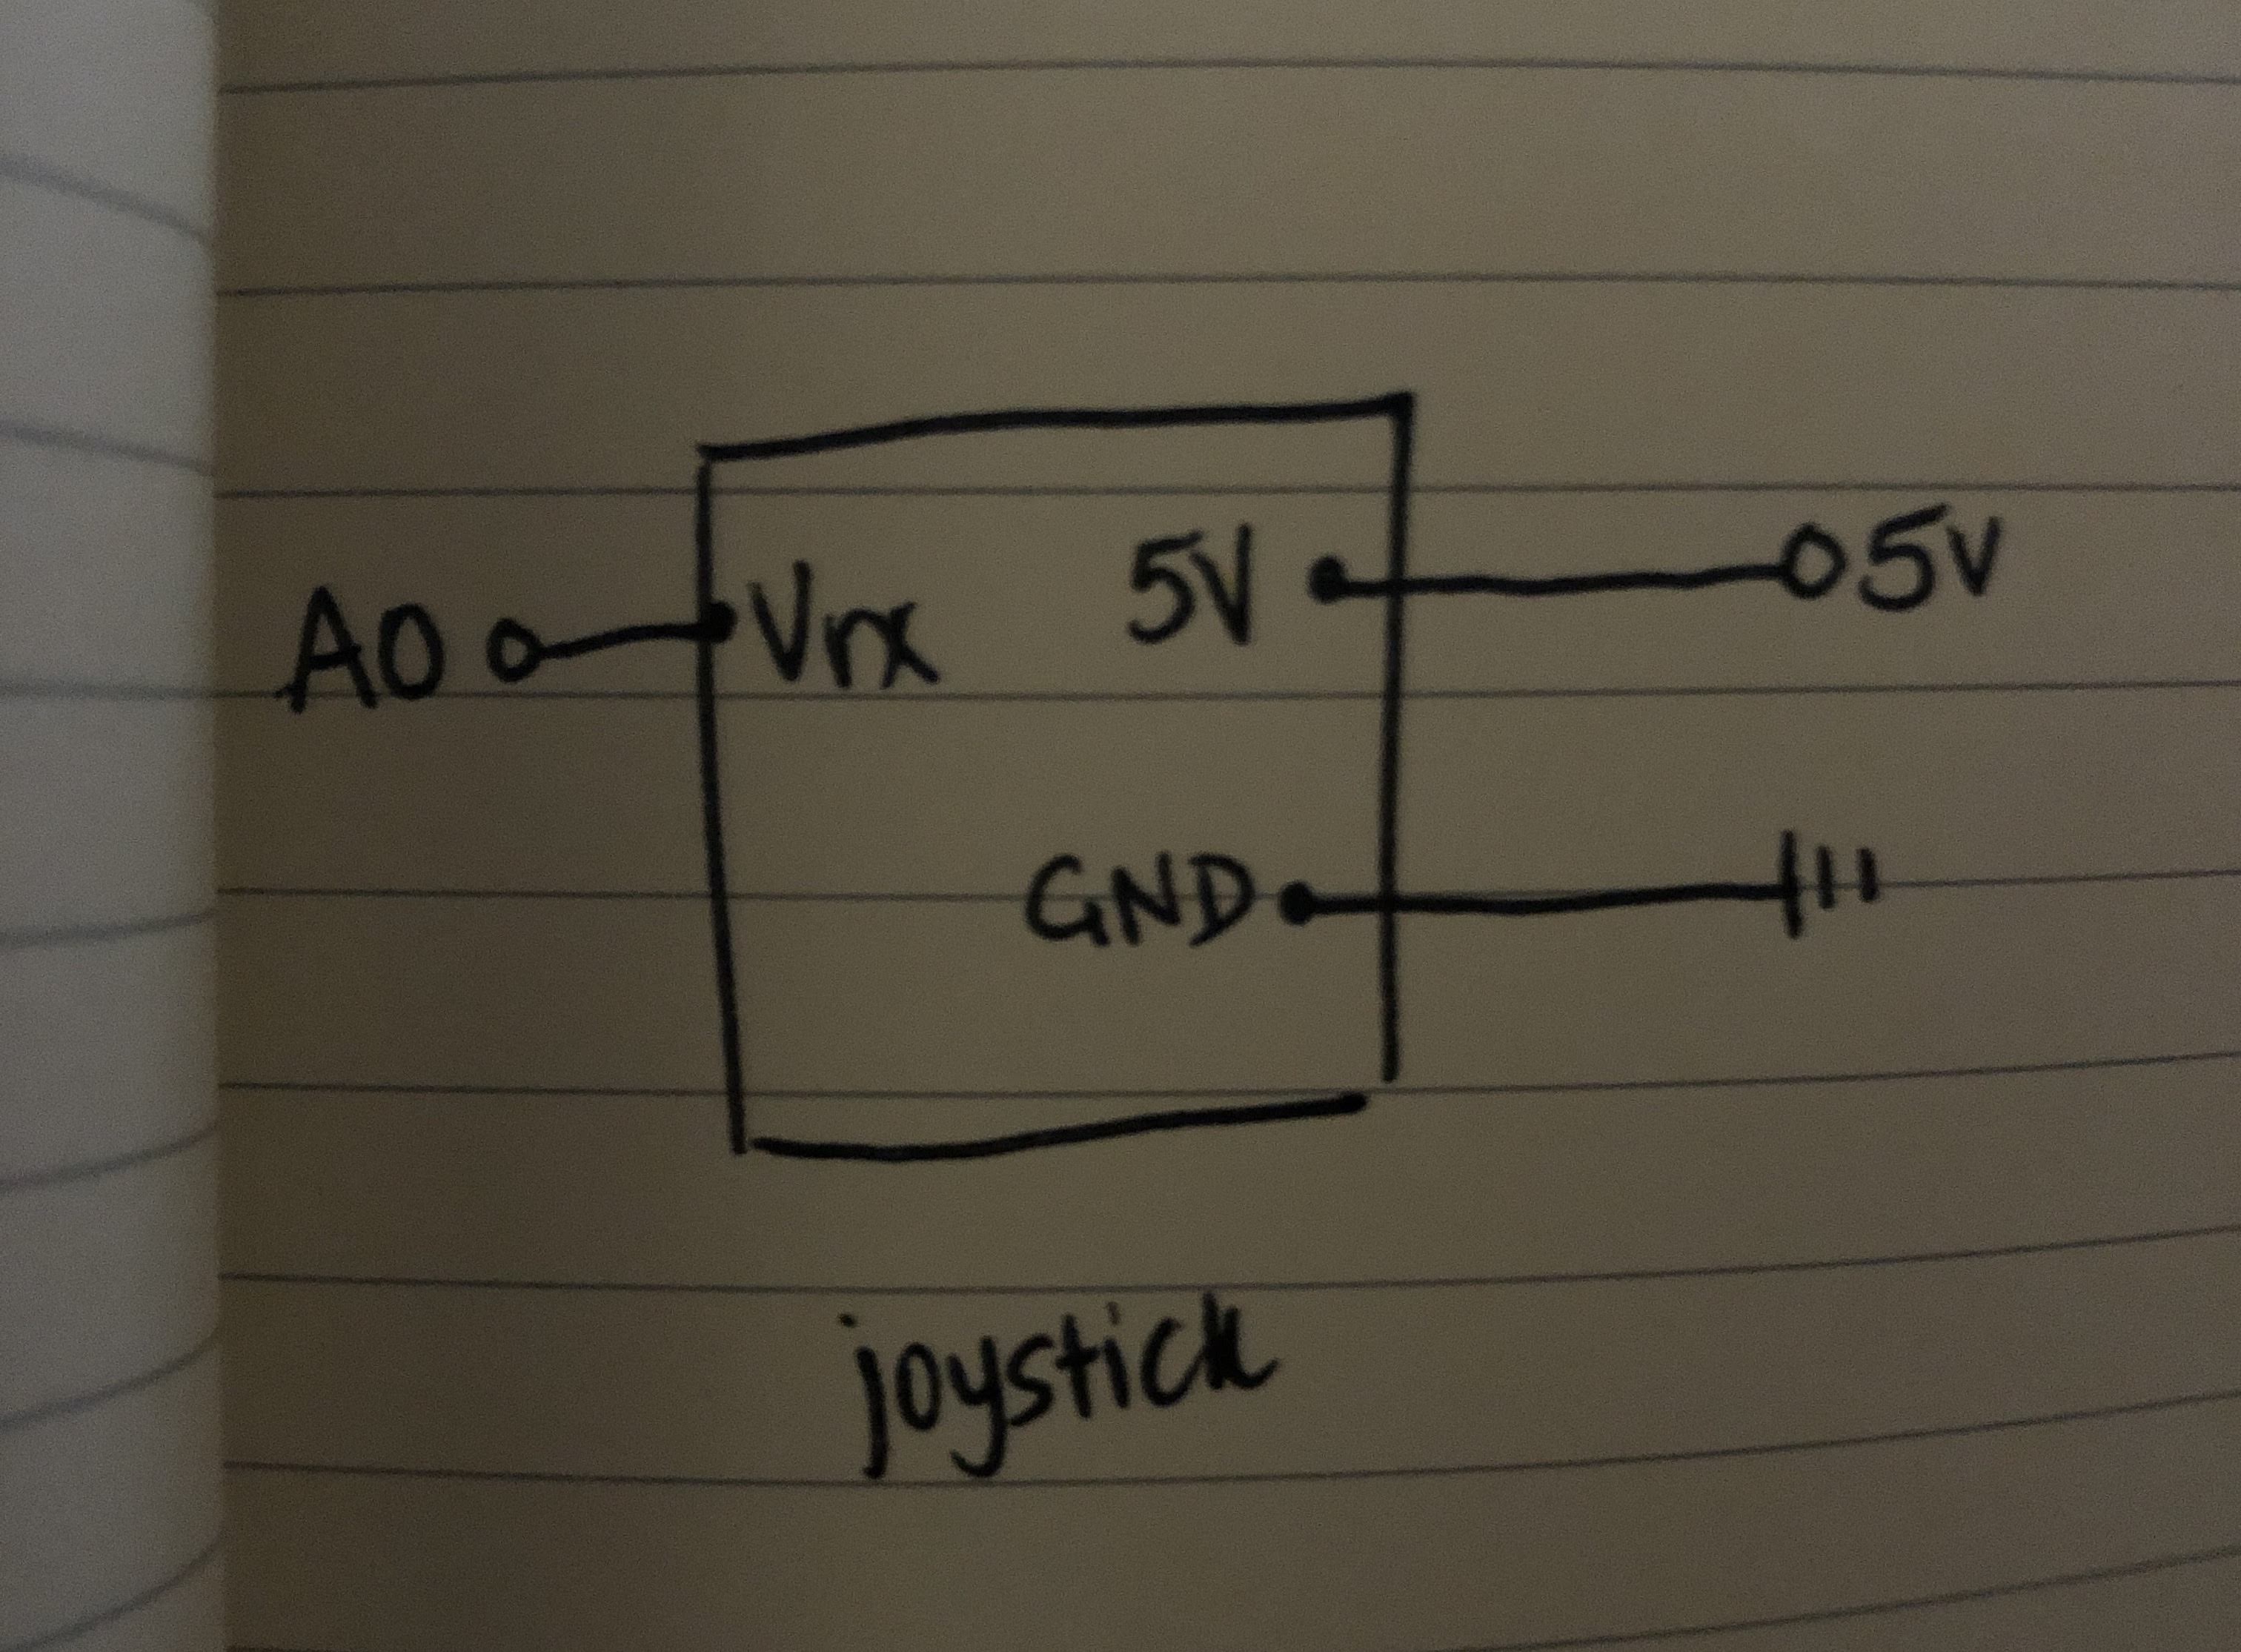 A0 Vrx 5V 5V
GND
joystick